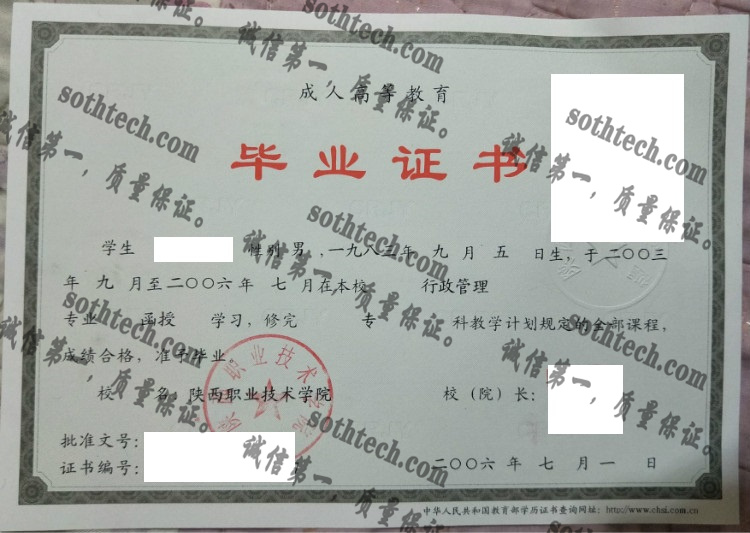 成人高等教育
毕业证书
学生 性别 男 ,一九八三年 九 月 五 日生, 于二〇〇三
年 九 月至二〇〇六年 七 月在本校 行政管理
专业 函授 学习, 修完 专 科教学计划规定的全部课程,
成绩合格, 准予毕业。
校 名: 陕西职业技术学院
校（院）长:
批准文号:
证书编号:
二〇〇六 年 七 月 一 日
中华人民共和国教育部学历证书查询网址: http://www.chsi.com.cn
陕西职业技术学院
sothtech.com
诚信第一，质量保证。
sothtech.com
诚信第一，质量保证。
sothtech.com
诚信第一，质量保证。
sothtech.com
诚信第一，质量保证。
sothtech.com
诚信第一，质量保证。
sothtech.com
诚信第一，质量保证。
sothtech.com
诚信第一，质量保证。
sothtech.com
诚信第一，质量保证。